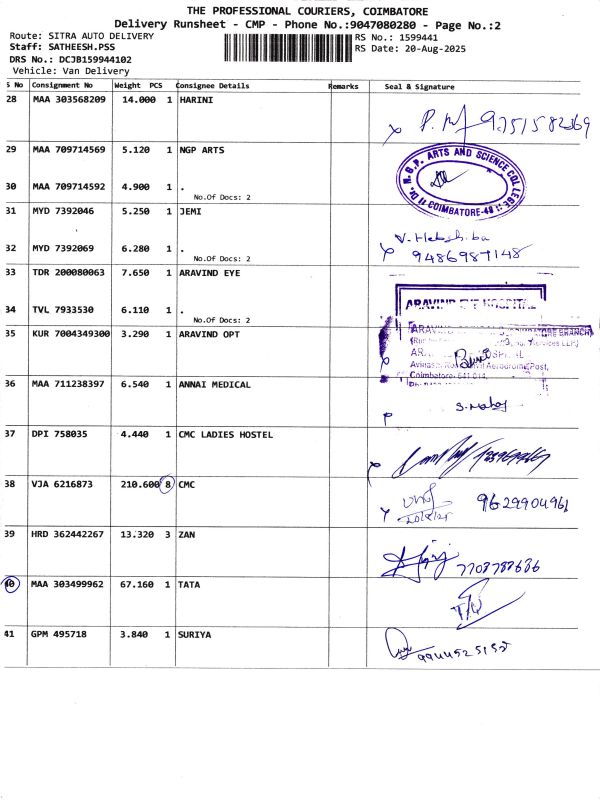 THE PROFESSIONAL COURIERS, COIMBATORE
Delivery Runsheet - CMP - Phone No.:9047080280 - Page No.:2
Route: SITRA AUTO DELIVERY
RS No.: 1599441
Staff: SATHEESH.PSS
RS Date: 20-Aug-2025
DRS No.: DCJB159944102
Vehicle: Van Delivery
S No Consignment No Weight PCS Consignee Details Remarks Seal & Signature
28 MAA 303568209 14.000 1 HARINI
29 MAA 709714569 5.120 1 NGP ARTS
Dr. N.G.P. ARTS AND SCIENCE COLLEGE
COIMBATORE-48
30 MAA 709714592 4.900 1 .
No.Of Docs: 2
31 MYD 7392046 5.250 1 JEMI
V. Hebshiba
9486987148
32 MYD 7392069 6.280 1 .
No.Of Docs: 2
33 TDR 200080063 7.650 1 ARAVIND EYE
ARAVIND EYE HOSPITAL
34 TVL 7933530 6.110 1 .
No.Of Docs: 2
35 KUR 7004349300 3.290 1 ARAVIND OPT
Coimbatore-641 014.
36 MAA 711238397 6.540 1 ANNAI MEDICAL
37 DPI 758035 4.440 1 CMC LADIES HOSTEL
38 VJA 6216873 210.600 8 CMC
9629904961
20/8/25
39 HRD 362442267 13.320 3 ZAN
7708788686
40 MAA 303499962 67.160 1 TATA
41 GPM 495718 3.840 1 SURIYA
9944525152